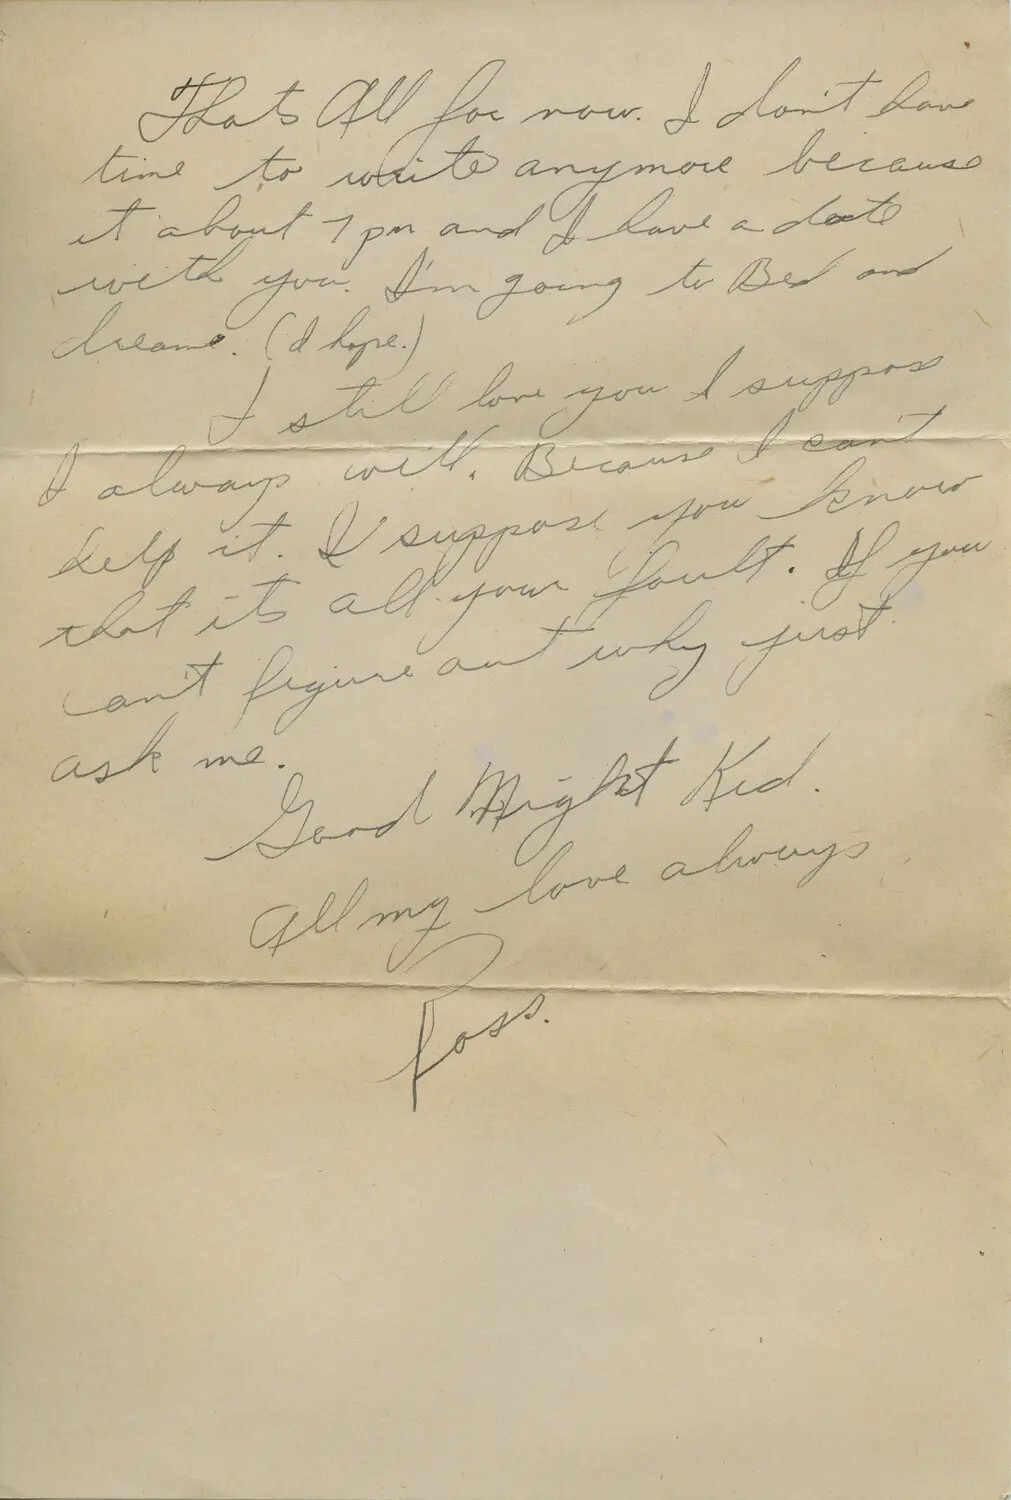 Thats All for now. I don't have
time to write anymore because
it about 7 pm and I have a date
with you. I'm going to Bed and
dreams. (I hope.)
I still love you I suppose
I always will. Because I can't
help it. I suppose you know
that its all your fault. If you
can't figure out why just
ask me.
Good Night Kid.
All my love always
Ross.